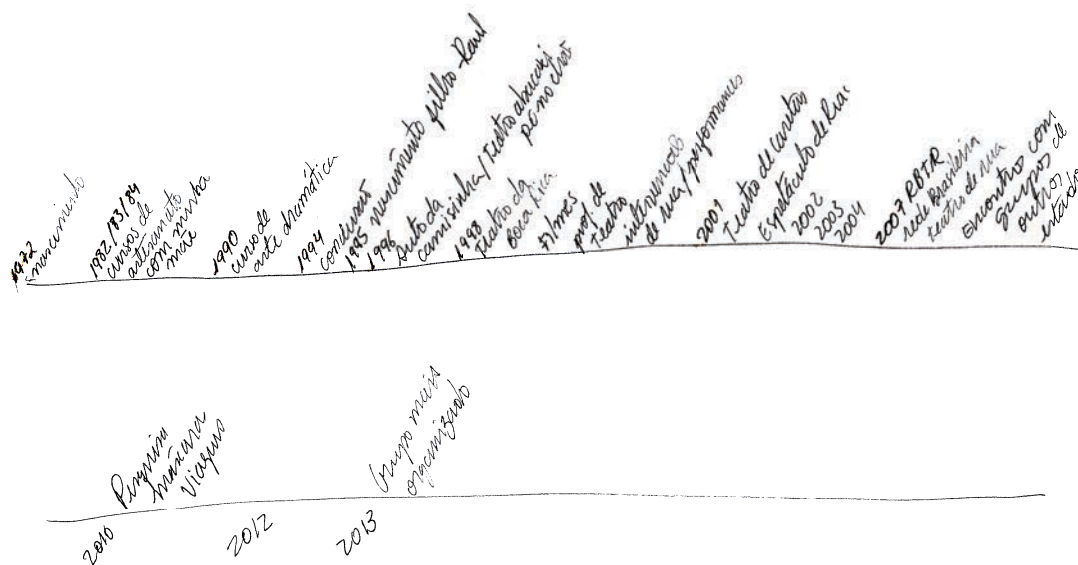 1972
nascimento
1982/83/84
cursos de
artesanato
com minha
mãe
1990
curso de
arte dramática
1994
conclusão
1995 nascimento filho Raul
1996
Auto da
camisinha / Teatro
pé no chão
1998
Teatro da
Boca Rica
prof. de
Teatro
intervenções
de rua / performances
2001
Teatro de Caretas
Espetáculo de Rua
2002
2003
2004
2007 RBTR
rede Brasileira
teatro de rua
Encontro com
grupos de
outros
estados
2010
Pesquisa
máscara
Viagens
2012
2013
Grupo mais
organizado